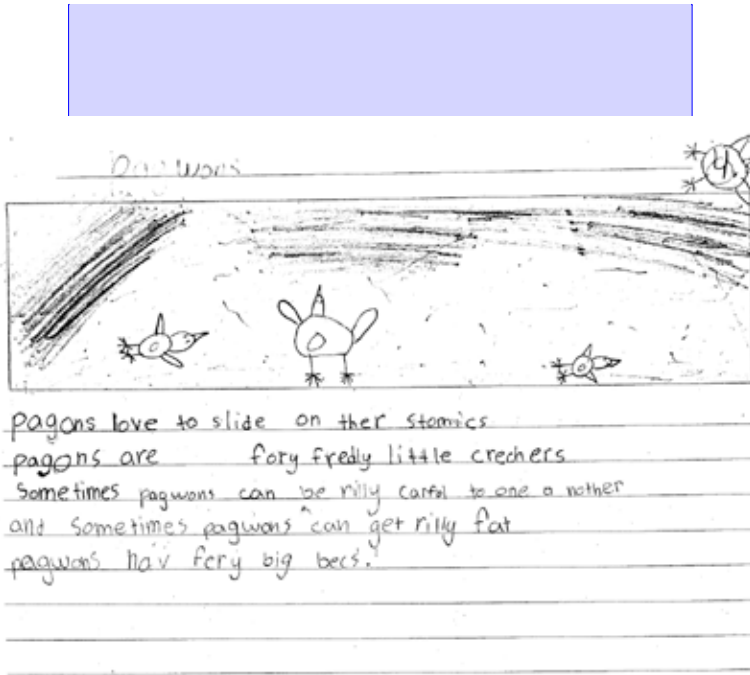 pagons love to slide on ther stomics
pagons are fory fredly little crechers
Sometimes pagwons can be rilly carfol to one a nother
and Sometimes pagwons can get rilly fat
pagwons hav fery big becs.